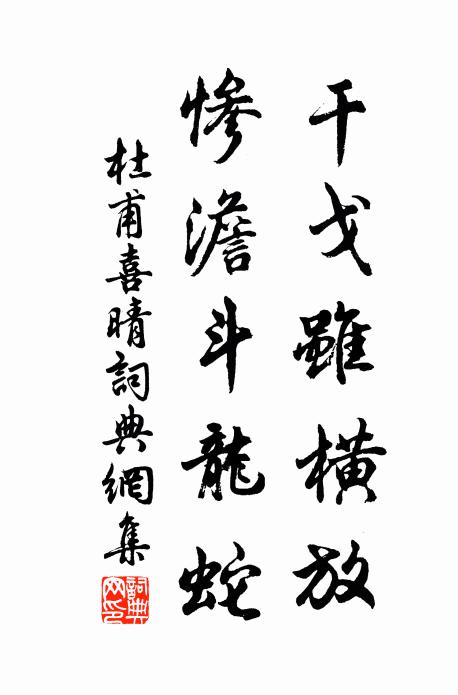 干戈雖橫放
慘澹斗龍蛇
杜甫喜晴詞典網集
詞典網印